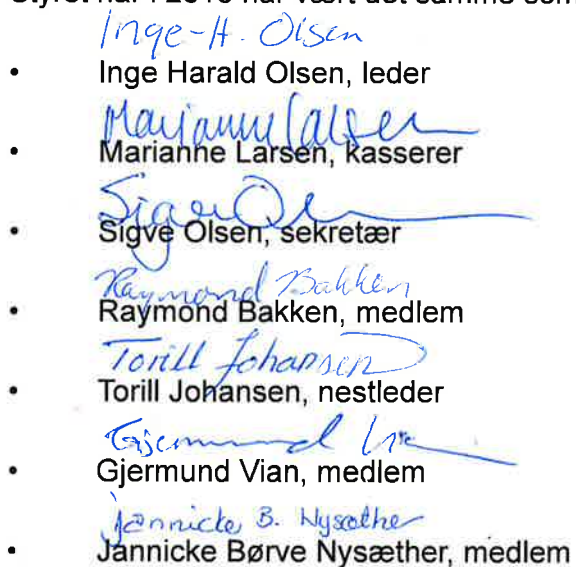 Inge-H. Olsen
• Inge Harald Olsen, leder
Marianne Larsen
• Marianne Larsen, kasserer
Sigve Olsen
• Sigve Olsen, sekretær
Raymond Bakken
• Raymond Bakken, medlem
Torill Johansen
• Torill Johansen, nestleder
Gjermund Vian
• Gjermund Vian, medlem
Jannicke B. Nysæther
• Jannicke Børve Nysæther, medlem